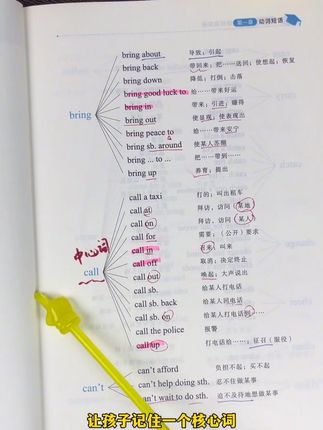 第一章 动词短语
bring
bring about 导致;引起
bring back 带回来;把……送回;使想起;恢复
bring down 降低;打倒;击落
bring good luck to 给……带来好运
bring in 带来;引进;赚得
bring out 使显现;使表现出
bring peace to 给……带来安宁
bring sb. around 使某人苏醒
bring ... to ... 把……带到……
bring up 养育;提出
中心词
call
call a taxi 打的;叫出租车
call at 拜访、访问(某地)
call on 拜访、访问(某人)
call for 需要;(公开)要求
call in 召来;叫来
call off 取消;决定终止
call out 唤起;大声说出
call sb. 给某人打电话
call sb. back 给某人回电话
call sb. on 给某人打电话到……
call the police 报警
call up 打电话给……;征召(服役)
can't
can't afford 负担不起;买不起
can't help doing sth. 忍不住做某事
can't wait to do sth. 迫不及待地想做某事
让孩子记住一个核心词